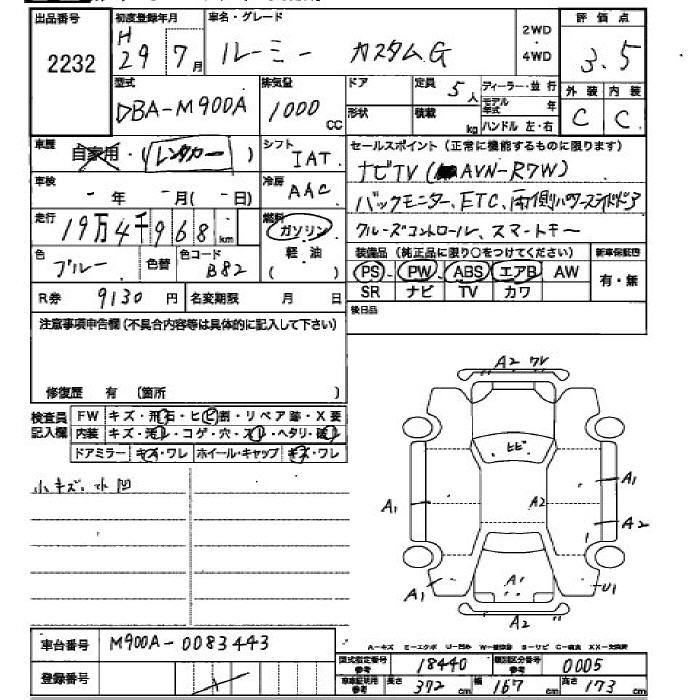 出品番号 2232
初度登録年月 H 29 7月
車名・グレード ルーミー カスタムG
2WD・4WD
評価点 3.5
型式 DBA-M900A
排気量 1000 CC
ドア
形状
定員 5人
積載 kg
ディーラー・並行
モデル年式 年
ハンドル 左・右
外装 C
内装 C
車歴 自家用・(レンタカー)
シフト IAT
セールスポイント(正常に機能するものに限ります)
ナビTV (AVN-R7W)
バックモニター、ETC、両側パワースライドドア
クルーズコントロール、スマートキー
車検 - 年 - 月(- 日)
冷房 AAC
走行 19万4千968 km
燃料 ガソリン 軽油 ( )
色 ブルー
色替
色コード B82
装備品(純正品に限り○をつけてください)
新車保証書 有・無
PS PW ABS エアB AW
SR ナビ TV カワ
R券 9130円
名変期限 月 日
後日品
注意事項申告欄(不具合内容等は具体的に記入して下さい)
修復歴 有 (箇所 )
検査員記入欄
FW キズ・飛石・ヒビ割・リペア跡・X要
内装 キズ・汚レ・コゲ・穴・スレ・ヘタリ・破レ
ドアミラー キズ・ワレ ホイール・キャップ キズ・ワレ
小キズ、小凹
A2 ワレ
ヒビ
A1
A1
A2
A2
A1
A1
U1
A2
車台番号 M900A-0083443
登録番号
A-キズ E-エクボ U-凹み W-補修跡 S-サビ C-腐食 XX-交換済
型式指定番号 参考 18440
類別区分番号 参考 0005
車庫証明用 参考 長さ 372 cm 幅 167 cm 高さ 173 cm